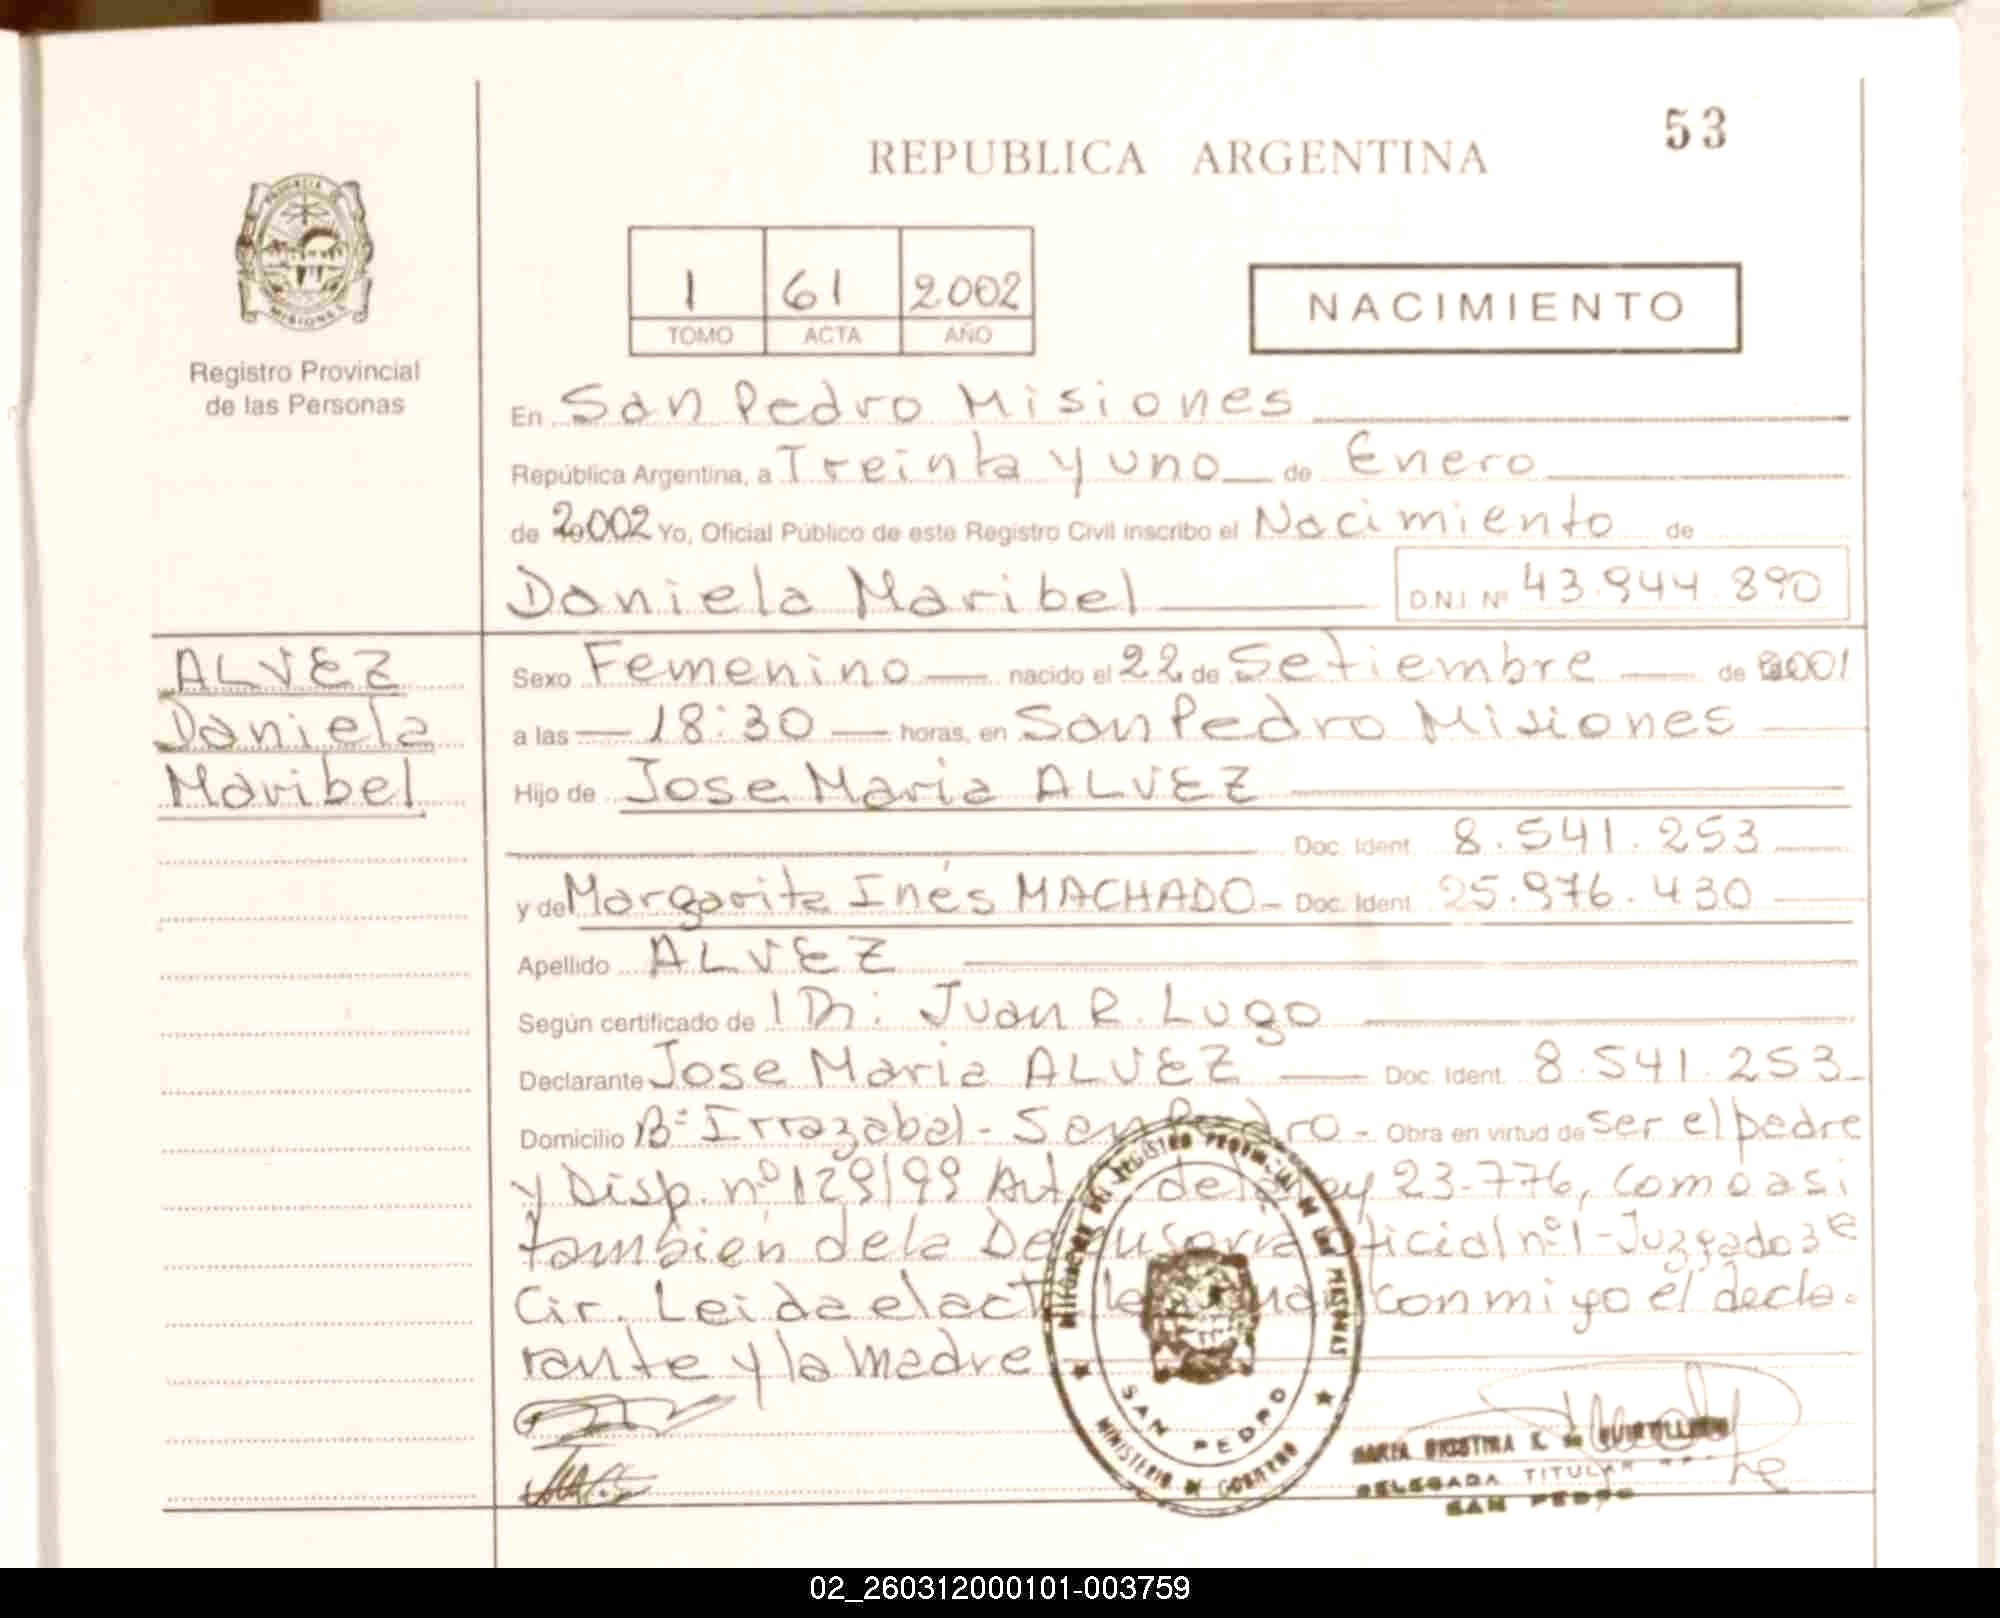 53
REPUBLICA ARGENTINA
PROVINCIA DE
MISIONES
Registro Provincial
de las Personas
1 61 2002
TOMO ACTA AÑO
NACIMIENTO
En San Pedro Misiones
República Argentina, a Treinta y uno de Enero
de 2002 Yo, Oficial Público de este Registro Civil inscribo el Nacimiento de
Daniela Maribel D.N.I. Nº 43.944.890
ALVEZ
Daniela
Maribel
Sexo Femenino nacido el 22 de Setiembre de 2001
a las 18:30 horas, en San Pedro Misiones
Hijo de Jose Maria ALVEZ
Doc. Ident. 8.541.253
y de Margarita Inés MACHADO - Doc. Ident. 25.976.430
Apellido ALVEZ
Según certificado de Juan R. Lugo
Declarante Jose Maria ALVEZ Doc. Ident. 8.541.253
Domicilio Bº Irrazabal - San Pedro - Obra en virtud de ser el padre
y Disp. nº 129/99 Art. de la Ley 23.776, como asi
también de la Defensoria Oficial nº 1 - Juzgado 3ª
Cir. Leida el acta la firman conmigo el decla-
rante y la madre
REGISTRO PROVINCIAL DE LAS PERSONAS
SAN PEDRO
MINISTERIO DE GOBIERNO
MARIA CRISTINA
DELEGADA TITULAR
SAN PEDRO
02_260312000101-003759